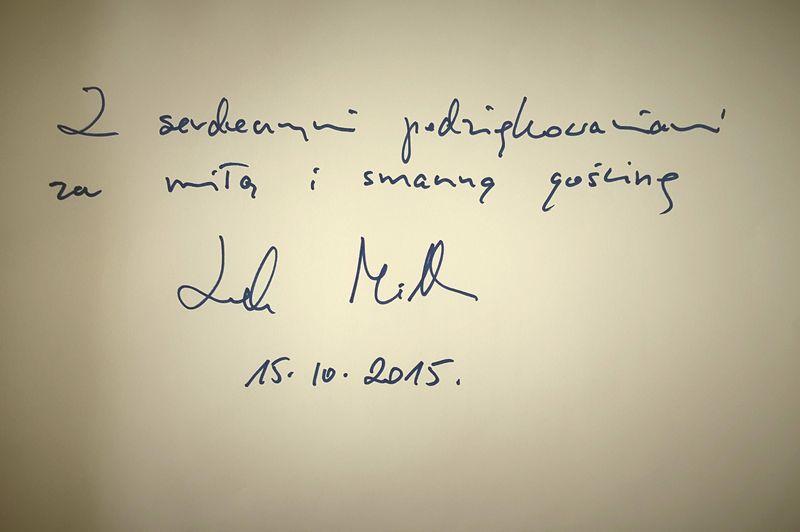 Z serdecznymi podziękowaniami
za miłą i smaczną gościnę
15.10.2015.